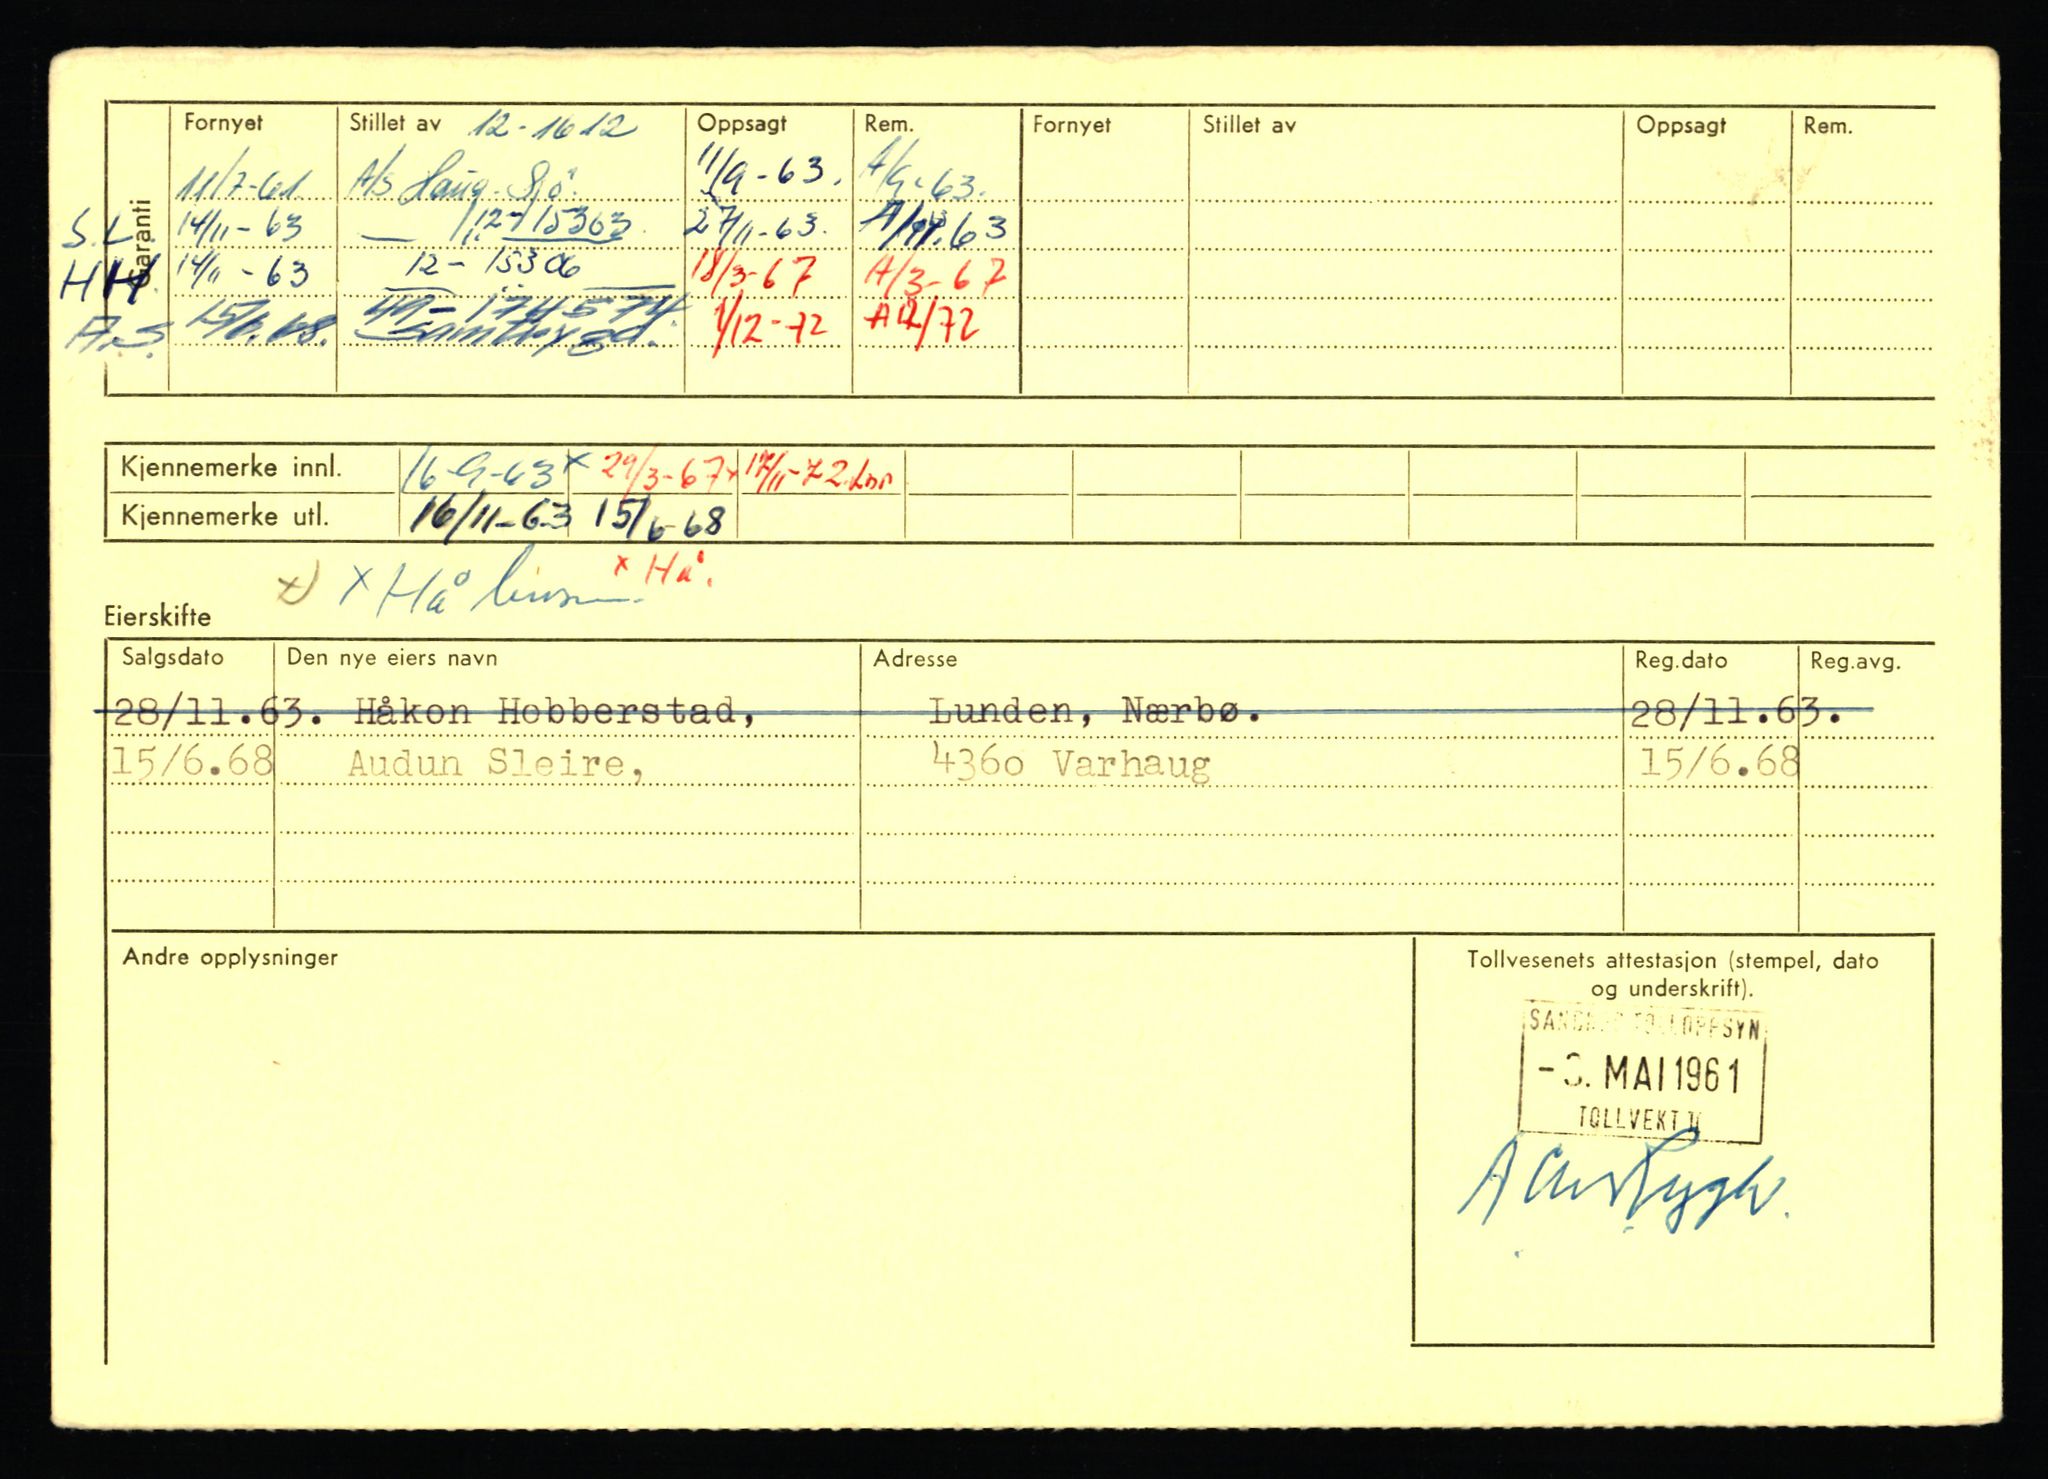 Garanti
Fornyet Stillet av 12-1612 Oppsagt Rem. Fornyet Stillet av Oppsagt Rem.
11/7-61. A/S Haug. Sjø. 11/9-63. A/9-63.
S.L. 14/11-63 — 12-15363 27/11-63. A/11.63
HH. 14/11-63 12-15306 18/3-67 A/3-67
A.S. 15/6.68. 49-174574. 1/12-72 A12/72
Samtrygd.
Kjennemerke innl. 16-9-63 x 29/3-67x 17/11-72 Lnr
Kjennemerke utl. 16/11-63 15/6-68
x) x Hå x Hå.
Eierskifte
Salgsdato Den nye eiers navn Adresse Reg.dato Reg.avg.
28/11.63. Håkon Hobberstad, Lunden, Nærbø. 28/11.63.
15/6.68 Audun Sleire, 4360 Varhaug 15/6.68
Andre opplysninger
Tollvesenets attestasjon (stempel, dato
og underskrift).
SANDNES TOLLOPPSYN
MAI 1961
TOLLVEKT